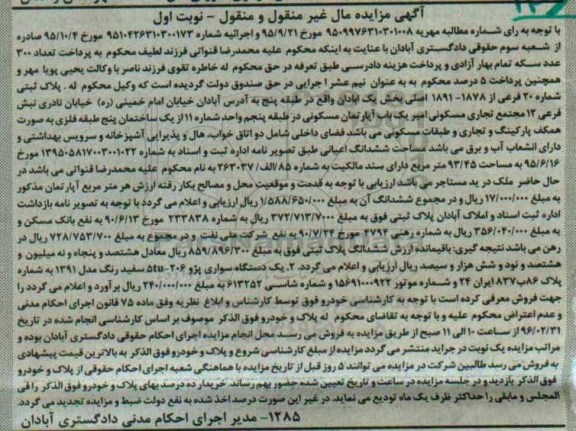 آگهی مزایده مال غیر منقول و منقول - نوبت اول
با توجه به رای شماره مطالبه مهریه ۹۵۰۹۹۷۶۳۱۰۳۰۱۰۰۸ مورخ ۹۵/۹/۲۱ و اجرائیه شماره ۹۵۱۰۴۲۶۳۱۰۳۰۰۱۷۳ مورخ ۹۵/۱۰/۴ صادره
از شعبه سوم حقوقی دادگستری آبادان با عنایت به اینکه محکوم علیه محمدرضا قنواتی فرزند لطیف محکوم به پرداخت تعداد ۳۰۰
عدد سکه تمام بهار آزادی و پرداخت هزینه دادرسی طبق تعرفه در حق محکوم له خاطره تقوی فرزند ناصر با وکالت یحیی پویا مهر و
همچنین پرداخت ۵ درصد محکوم به به عنوان نیم عشر اجرایی در حق صندوق دولت گردیده است که وکیل محکوم له . پلاک ثبتی
شماره ۲۰ فرعی از ۱۸۷۸- ۱۸۹۱ اصلی بخش یک ابادان واقع در طبقه پنج به آدرس آبادان خیابان امام خمینی (ره) خیابان نادری نبش
فرعی ۱۲ مجتمع تجاری مسکونی امیر یک باب آپارتمان مسکونی در طبقه پنجم واحد شماره ۱۱ از یک ساختمان پنج طبقه فلزی به صورت
همکف پارکینگ و تجاری و طبقات مسکونی می باشد فضای داخلی شامل دو اتاق خواب، هال و پذیرایی آشپزخانه و سرویس بهداشتی و
دارای انشعاب آب و برق می باشد مساحت ششدانگ اعیانی طبق تصویر نامه اداره ثبت و اسناد به شماره ۱۳۹۵۰۵۸۱۷۰۰۳۰۰۱۰۲۲ مورخ
۹۵/۶/۱۶ به مساحت ۹۳/۴۵ متر مربع دارای سند مالکیت به شماره ۸۵/الف/ ۲۶۳۰۳۷ به نام محکوم علیه محمدرضا قنواتی می باشد در
حال حاضر ملک در ید مستاجر می باشد ارزیابی با توجه به قدمت و موقعیت محل و مصالح بکار رفته ارزش هر متر مربع آپارتمان مذکور
به مبلغ ۱۷/۰۰۰/۰۰۰ ریال و در مجموع ششدانگ آن به مبلغ ۱/۵۸۸/۶۵۰/۰۰۰ ریال ارزیابی و اعلام می گردد با توجه به تصویر نامه بازداشت
اداره ثبت اسناد و املاک آبادان پلاک ثبتی فوق به مبلغ ۳۷۲/۷۱۳/۷۰۰ ریال به شماره ۲۳۳۸۳۸ مورخ ۹۰/۶/۱۳ به نفع بانک مسکن و
به مبلغ ۳۵۶/۰۴۰/۰۰۰ ریال به شماره رهنی ۴۷۹۴ مورخ ۹۰/۷/۲۴ به نفع شرکت ملی نفت و در مجموع به مبلغ ۷۲۸/۷۵۳/۷۰۰ ریال در
رهن می باشد نتیجه گیری: باقیمانده ارزش ششدانگ پلاک ثبتی فوق به مبلغ ۸۵۹/۸۹۶/۳۰۰ ریال معادل هشتصد و پنجاه و نه میلیون و
هشتصد و نود و شش هزار و سیصد ریال ارزیابی و اعلام می گردد. ۲. یک دستگاه سواری پژو ۲۰۶- ۵tu سفید رنگ مدل ۱۳۹۱ به شماره
پلاک ۸۶ب۸۳۷ ایران ۲۴ و شماره موتور ۱۵۶۹۱۰۰۹۲۲ و شماره شاسی ۶۱۳۲۵۲ به مبلغ ۲۴۰/۰۰۰/۰۰۰ ریال برآورد و اعلام می گردد را
جهت فروش معرفی کرده است با توجه به کارشناسی خودرو فوق توسط کارشناس و ابلاغ نظریه وفق ماده ۷۵ قانون اجرای احکام مدنی
و عدم اعتراض محکوم علیه و با توجه به تقاضای محکوم له پلاک و خودرو فوق الذکر موصوف بر اساس کارشناسی انجام شده در تاریخ
۹۶/۰۲/۳۱ از ساعت ۱۰ الی ۱۱ صبح از طریق مزایده به فروش می رسد محل انجام مزایده اجرای احکام حقوقی دادگستری آبادان بوده و
مراتب مزایده یک نوبت در جراید منتشر می گردد مزایده از مبلغ کارشناسی شروع و پلاک و خودرو فوق الذکر به بالاترین قیمت پیشنهادی
به فروش می رسد طالبین شرکت در مزایده می توانند ۵ روز قبل از تاریخ مزایده با هماهنگی شعبه اجرای احکام حقوقی از پلاک و خودرو
فوق الذکر بازدید و در جلسه مزایده در ساعت و تاریخ تعیین شده حضور بهم رساند. خریدار ده درصد بهای پلاک و خودرو فوق الذکر را فی
المجلس و مابقی را حداکثر ظرف یک ماه تودیع می نماید. در غیر این صورت درصد اخذ شده به نفع دولت ضبط و مزایده تجدید می گردد.
۱۲۸۵- مدیر اجرای احکام مدنی دادگستری آبادان